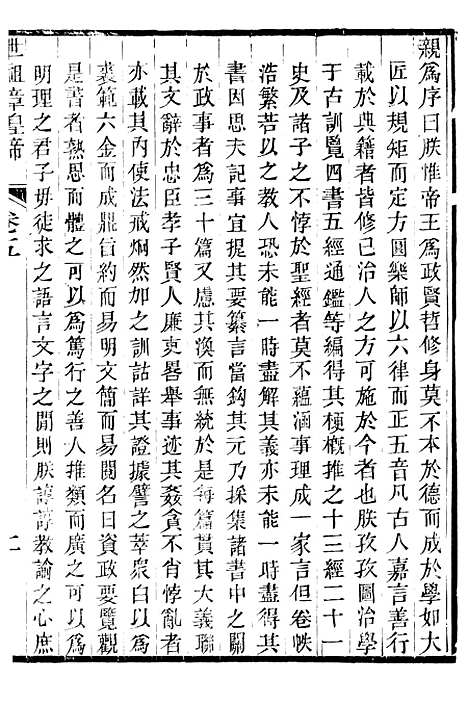 親爲序曰朕惟帝王爲政賢哲修身莫不本於德而成於學如大
匠以規矩而定方圓樂師以六律而正五音凡古人嘉言善行
載於典籍者皆修已治人之方可施於今者也朕孜孜圖治學
于古訓覽四書五經通鑑等編得其梗概推之十三經二十一
史及諸子之不悖於聖經者莫不蘊涵事理成一家言但卷帙
浩繁若以之教人恐未能一時盡解其義亦未能一時盡得其
書因思夫記事宜提其要纂言當鈎其元乃採集諸書中之關
於政事者爲三十篇又慮其渙而無統於是每篇貫其大義聯
其文辭於忠臣孝子賢人廉吏畧舉事迹其姦貪不肖悖亂者
亦載其內使法戒炯然加之訓詁詳其證據譬之萃衆白以爲
裘範六金而成鼎旨約而易明文簡而易閱名曰資政要覽觀
是書者熟思而體之可以爲篤行之善人推類而廣之可以爲
明理之君子毋徒求之語言文字之閒則朕諄諄教諭之心庶
世祖章皇帝 卷五 二